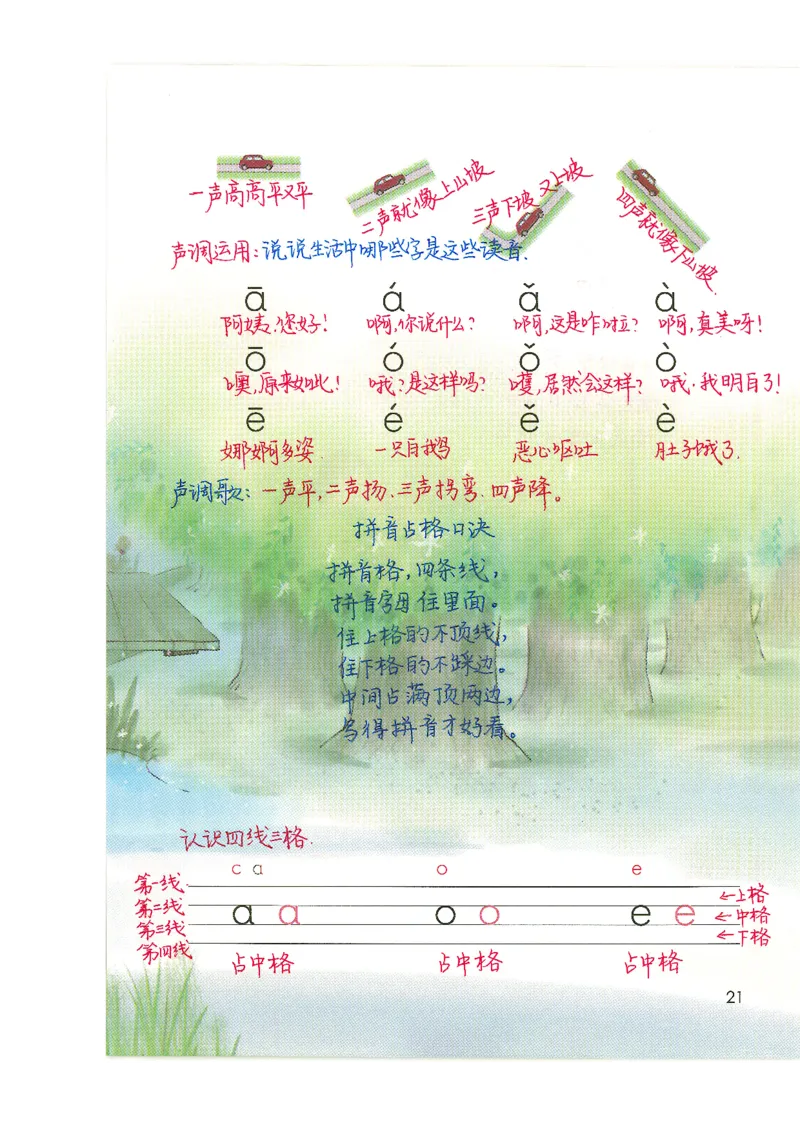 一声高高平又平
二声就像上山坡
三声下坡又上坡
四声就像下山坡.
声调运用:说说生活中哪些字是这些读音.
ā á ǎ à
阿姨,您好! 啊,你说什么? 啊,这是咋啦? 啊,真美呀!
ō ó ǒ ò
噢,原来如此! 哦?是这样吗? 嚄,居然会这样? 哦.我明白了!
ē é ě è
婀娜多姿. 一只白鹅 恶心呕吐 肚子饿了.
声调歌:一声平,二声扬.三声拐弯.四声降。
拼音占格口决
拼音格,四条线,
拼音字母住里面。
住上格的不顶线,
住下格的不踩边。
中间占满顶两边,
写得拼音才好看。
认识四线三格.
c a o e
第一线 ←上格
第二线 a a o o e e ←中格
第三线 ←下格
第四线
占中格 占中格 占中格
21